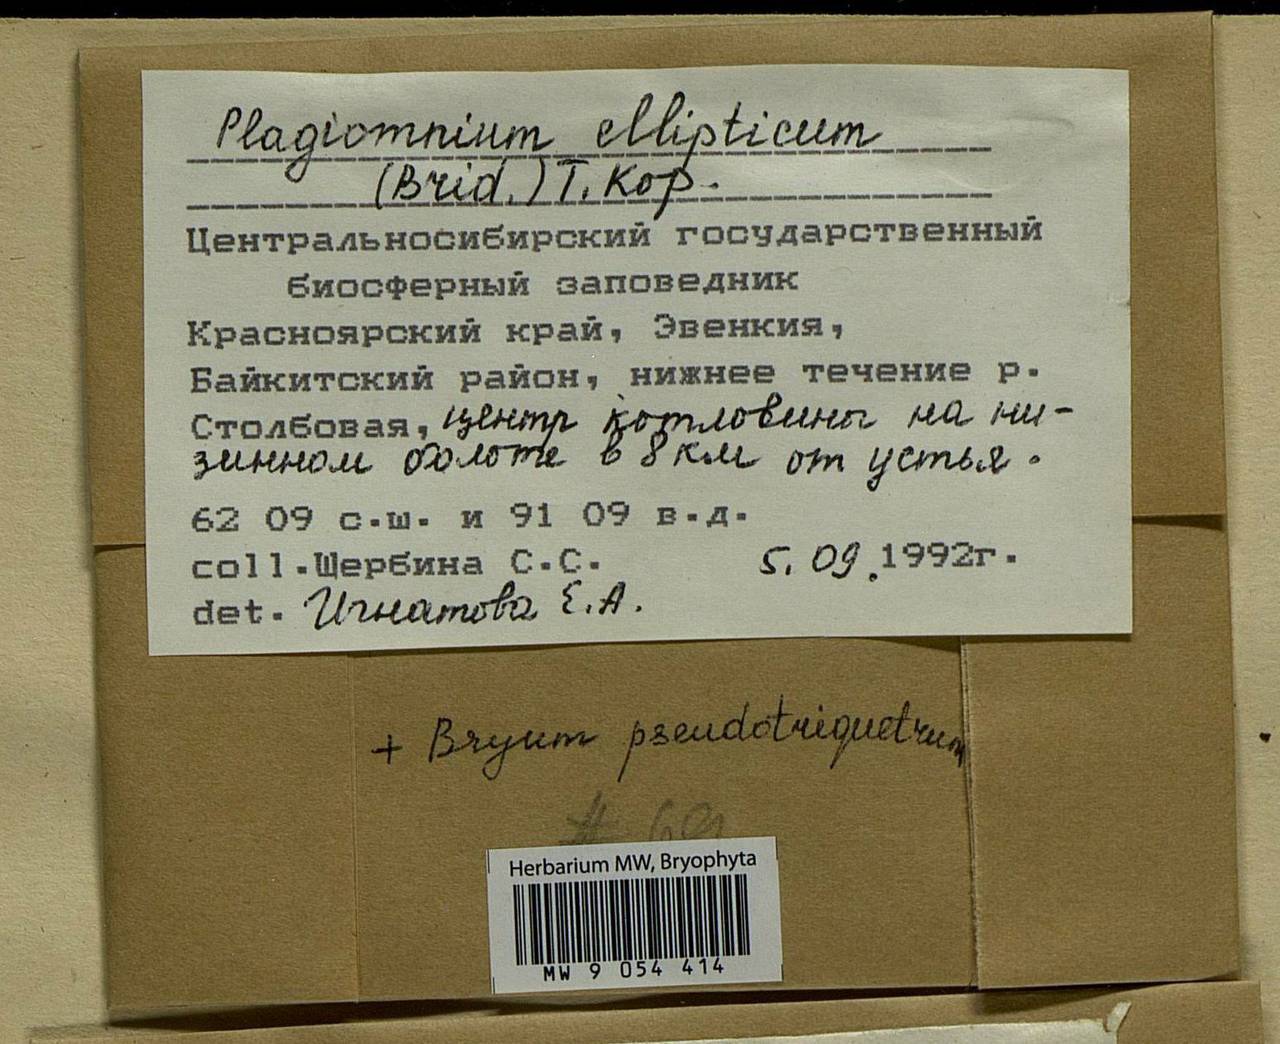 Plagiomnium ellipticum
(Brid.) T. Kop.
Центральносибирский государственный
биосферный заповедник
Красноярский край, Эвенкия,
Байкитский район, нижнее течение р.
Столбовая, центр котловины на ни-
зинном болоте в 8 км от устья.
62 09 с.ш. и 91 09 в.д.
coll. Щербина С.С. 5.09.1992г.
det. Игнатова Е.А.
+ Bryum pseudotriquetrum
# 69
Herbarium MW, Bryophyta
MW 9 054 414